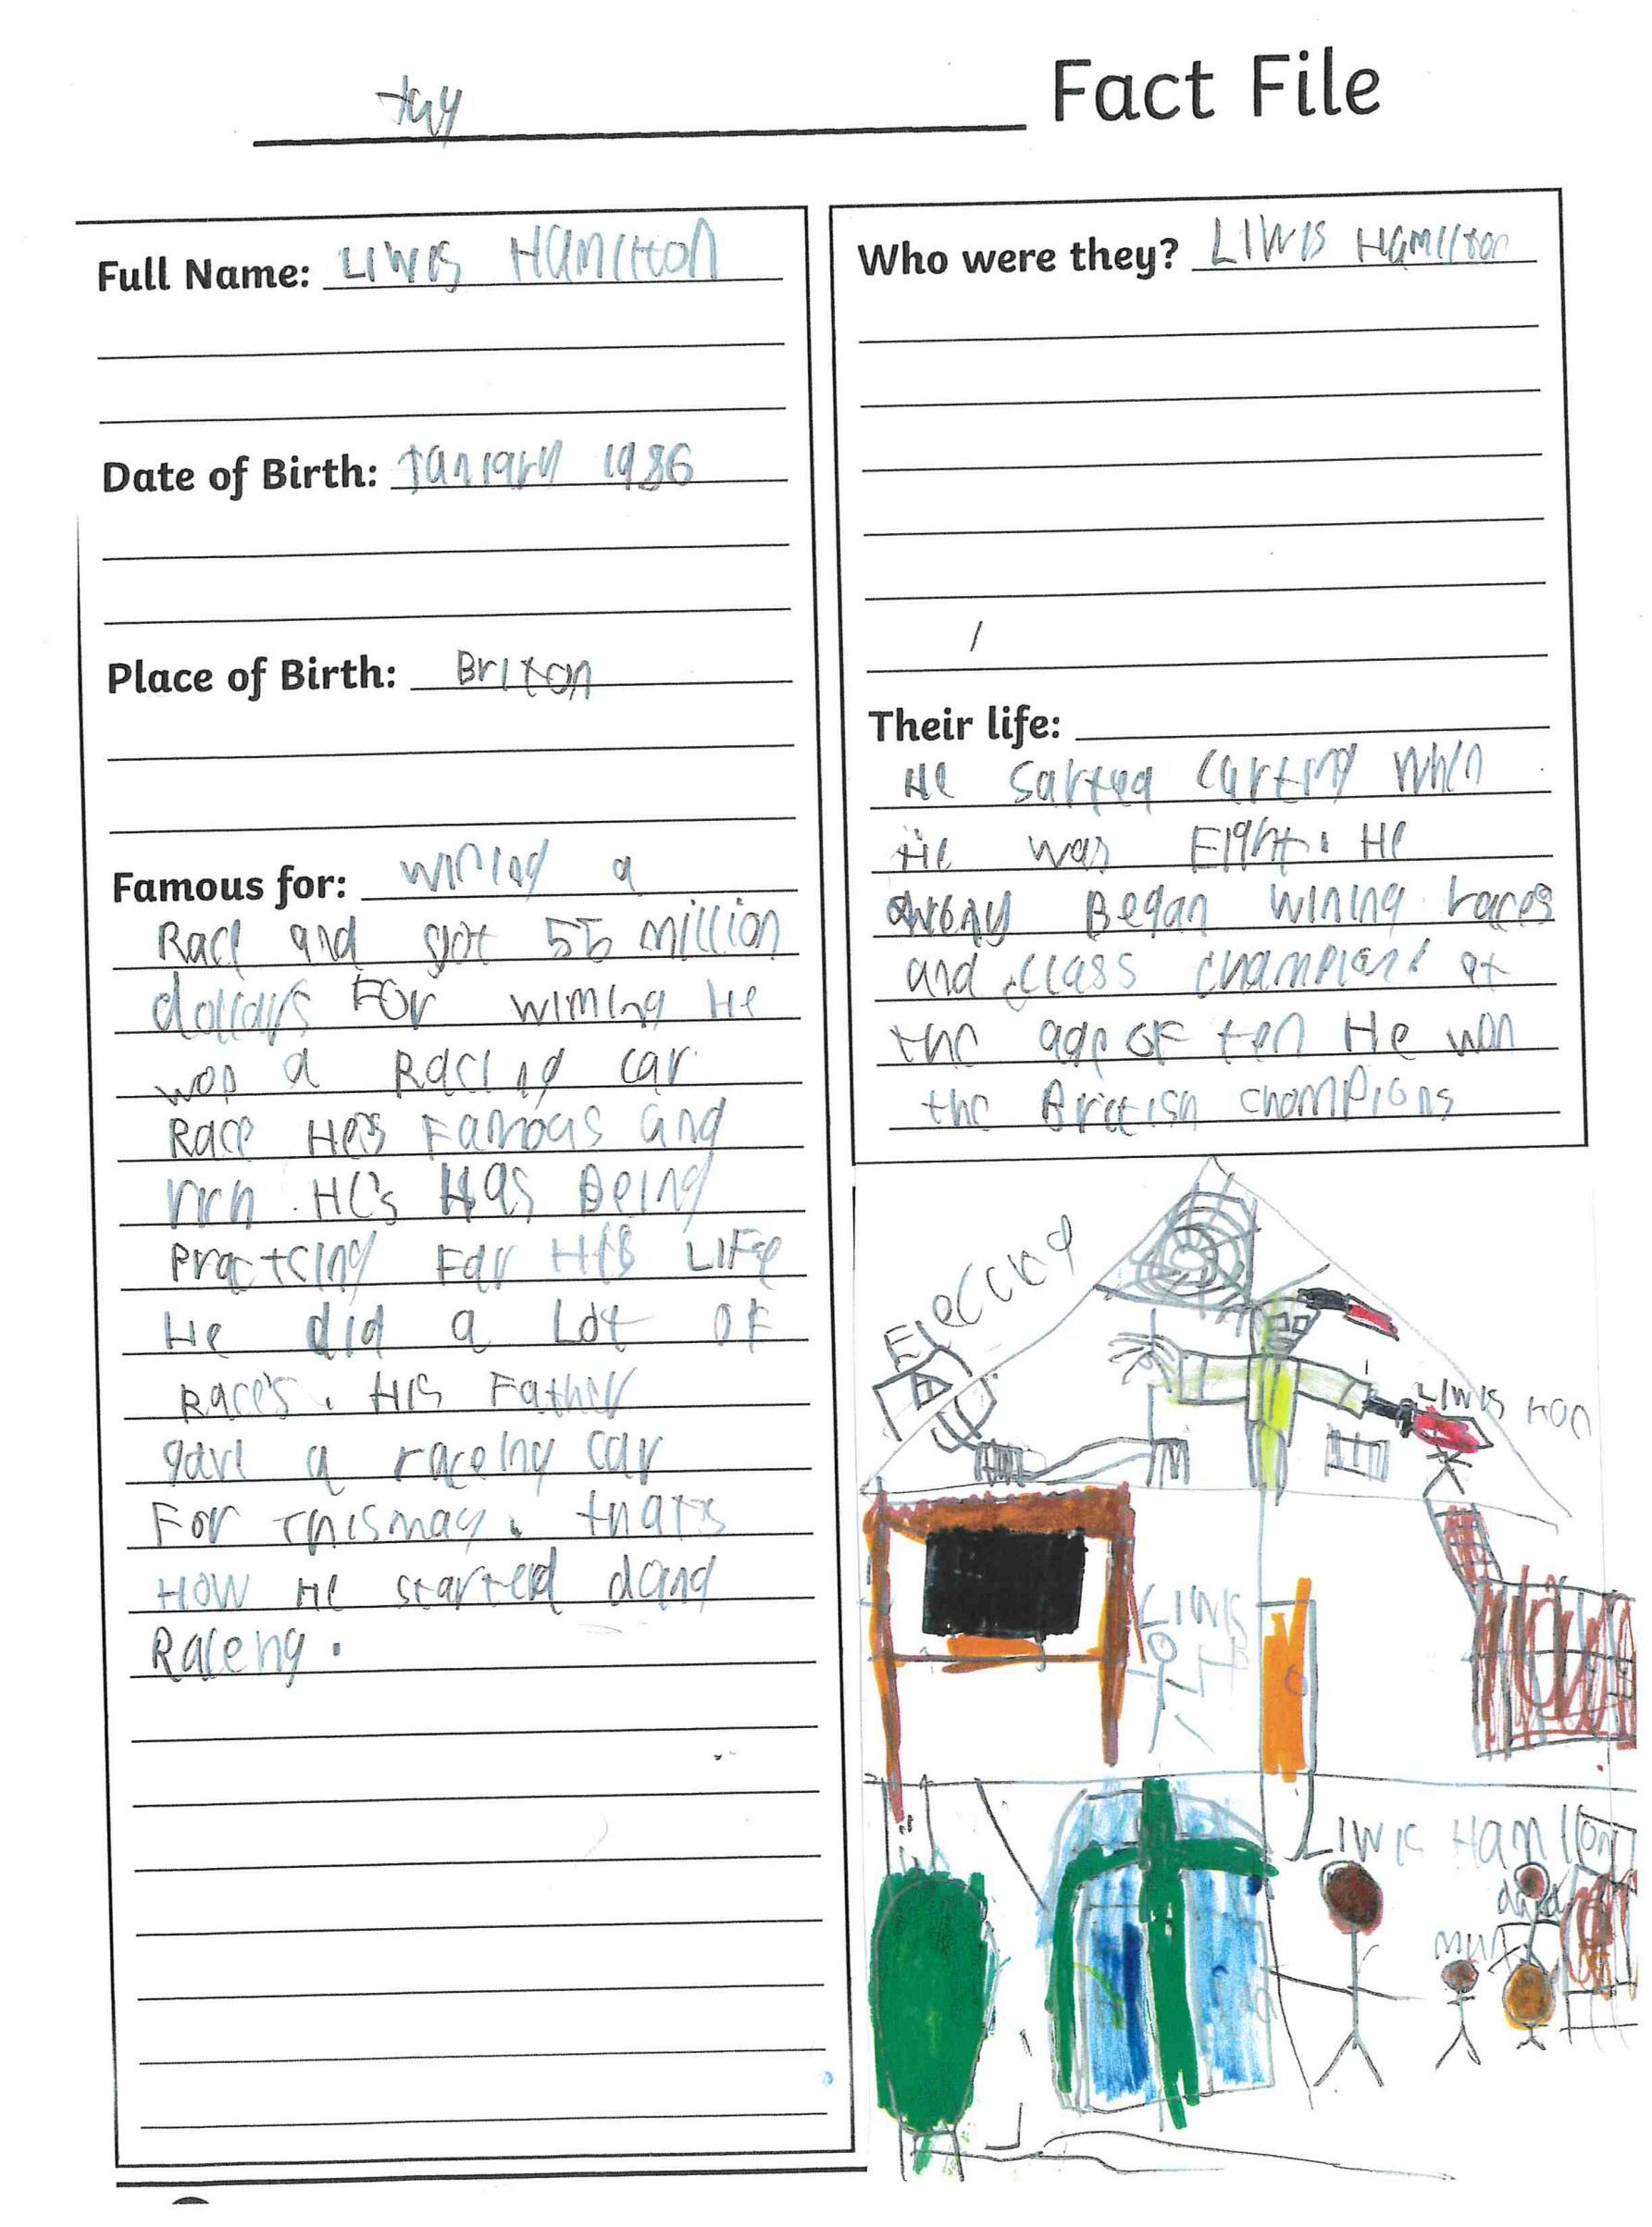 Jay Fact File
Full Name: LIWIS HAMILTON
Date of Birth: Janiary 1986
Place of Birth: Briton
Famous for: wining a
Race and got 55 million
dollars For wiming He
won a Racing car
Race He's Famous and
rich. He's Has Being
Practcing For His LIFe
He did a Lot OF
Race's. His Father
gave a raceing car
For Thismas. that's
How He started doing
Raceng.
Who were they? LIWIS HAMILTON
Their life:
He Sarted carting when
He was Eight. He
Began wining races
and class champion! at
the age OF ten He won
the Brittish champions
LIWIS
LIWIS
LIWIS Hamilton
mum